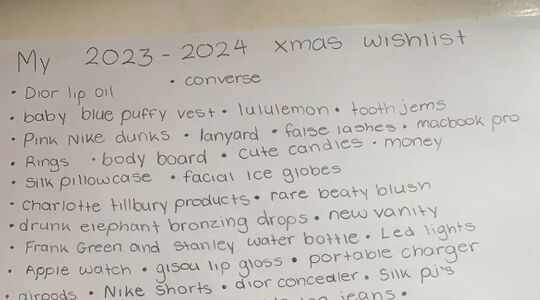 My 2023 - 2024 xmas wishlist
• Dior lip oil • converse
• baby blue puffy vest • lululemon • tooth jems
• Pink Nike dunks • lanyard • false lashes • macbook pro
• Rings • body board • cute candles • money
• silk pillowcase • facial ice globes
• charlotte tillbury products • rare beaty blush
• drunk elephant bronzing drops • new vanity
• Frank Green and Stanley water bottle • Led lights
• Apple watch • gisou lip gloss • portable charger
• airpods • Nike shorts • dior concealer • silk pj's
jeans •